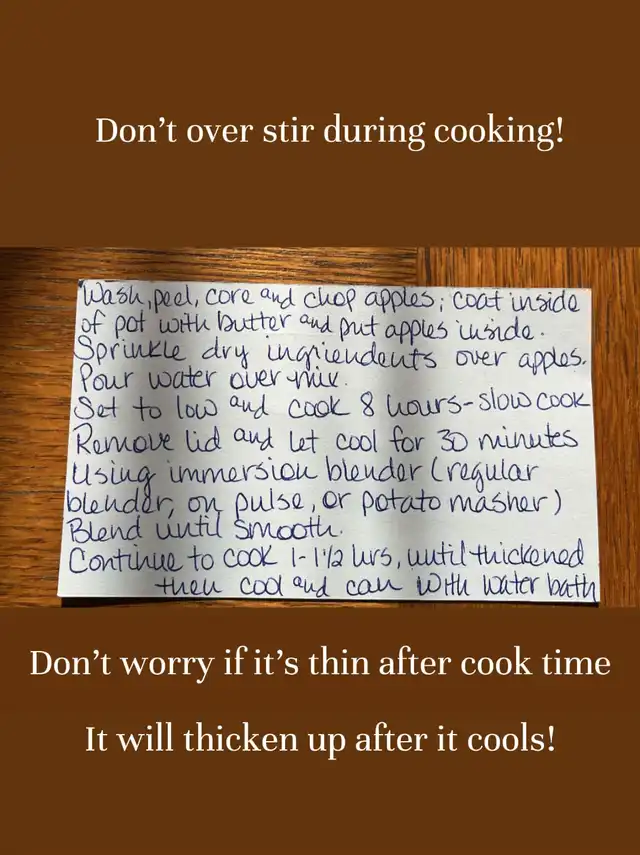 Don't over stir during cooking!
Wash, peel, core and chop apples; coat inside
of pot with butter and put apples inside.
Sprinkle dry ingriendents over apples.
Pour water over mix.
Set to low and cook 8 hours - slow cook
Remove lid and let cool for 30 minutes
Using immersion blender (regular
blender, on pulse, or potato masher)
Blend until smooth.
Continue to cook 1-1½ hrs, until thickened
then cool and can with water bath
Don't worry if it's thin after cook time
It will thicken up after it cools!